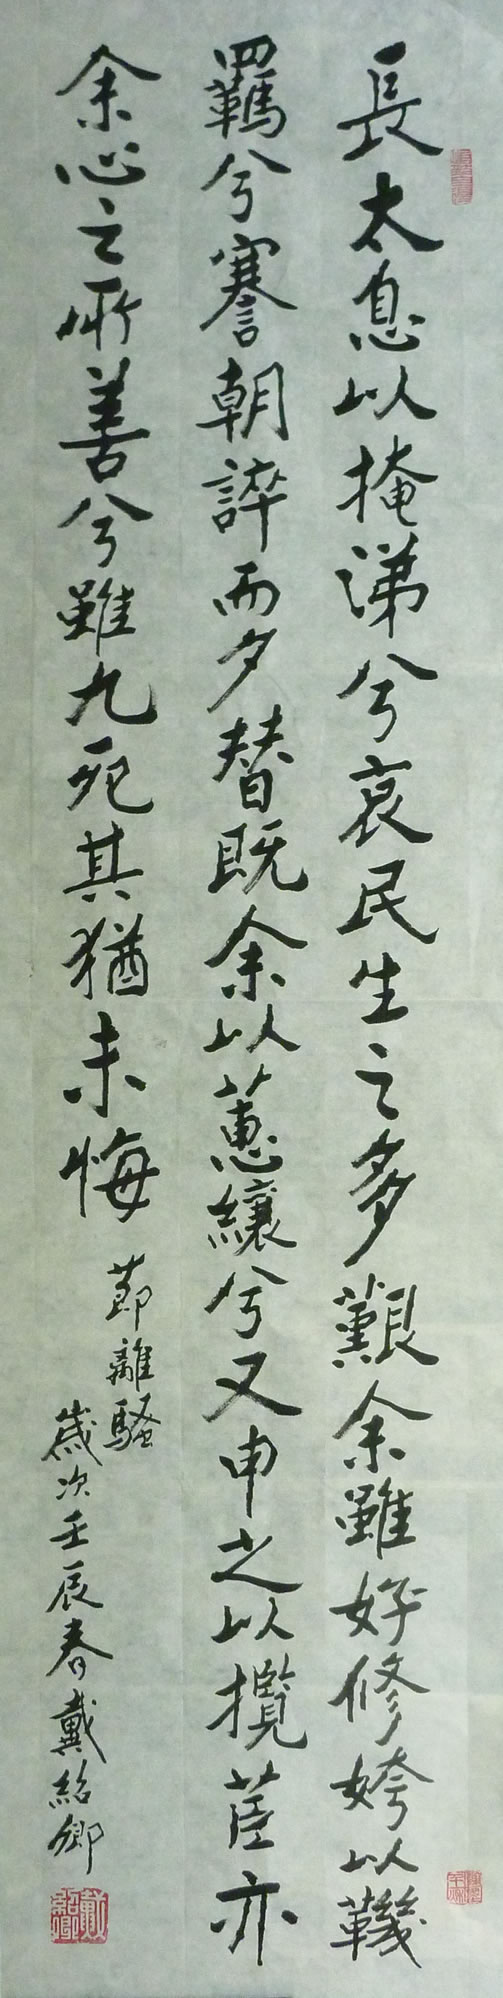 長太息以掩涕兮哀民生之多艱余雖好修姱以鞿
羈兮謇朝誶而夕替既余以蕙纕兮又申之以攬茝亦
余心之所善兮雖九死其猶未悔
節離騷
歲次壬辰春戴紹卿